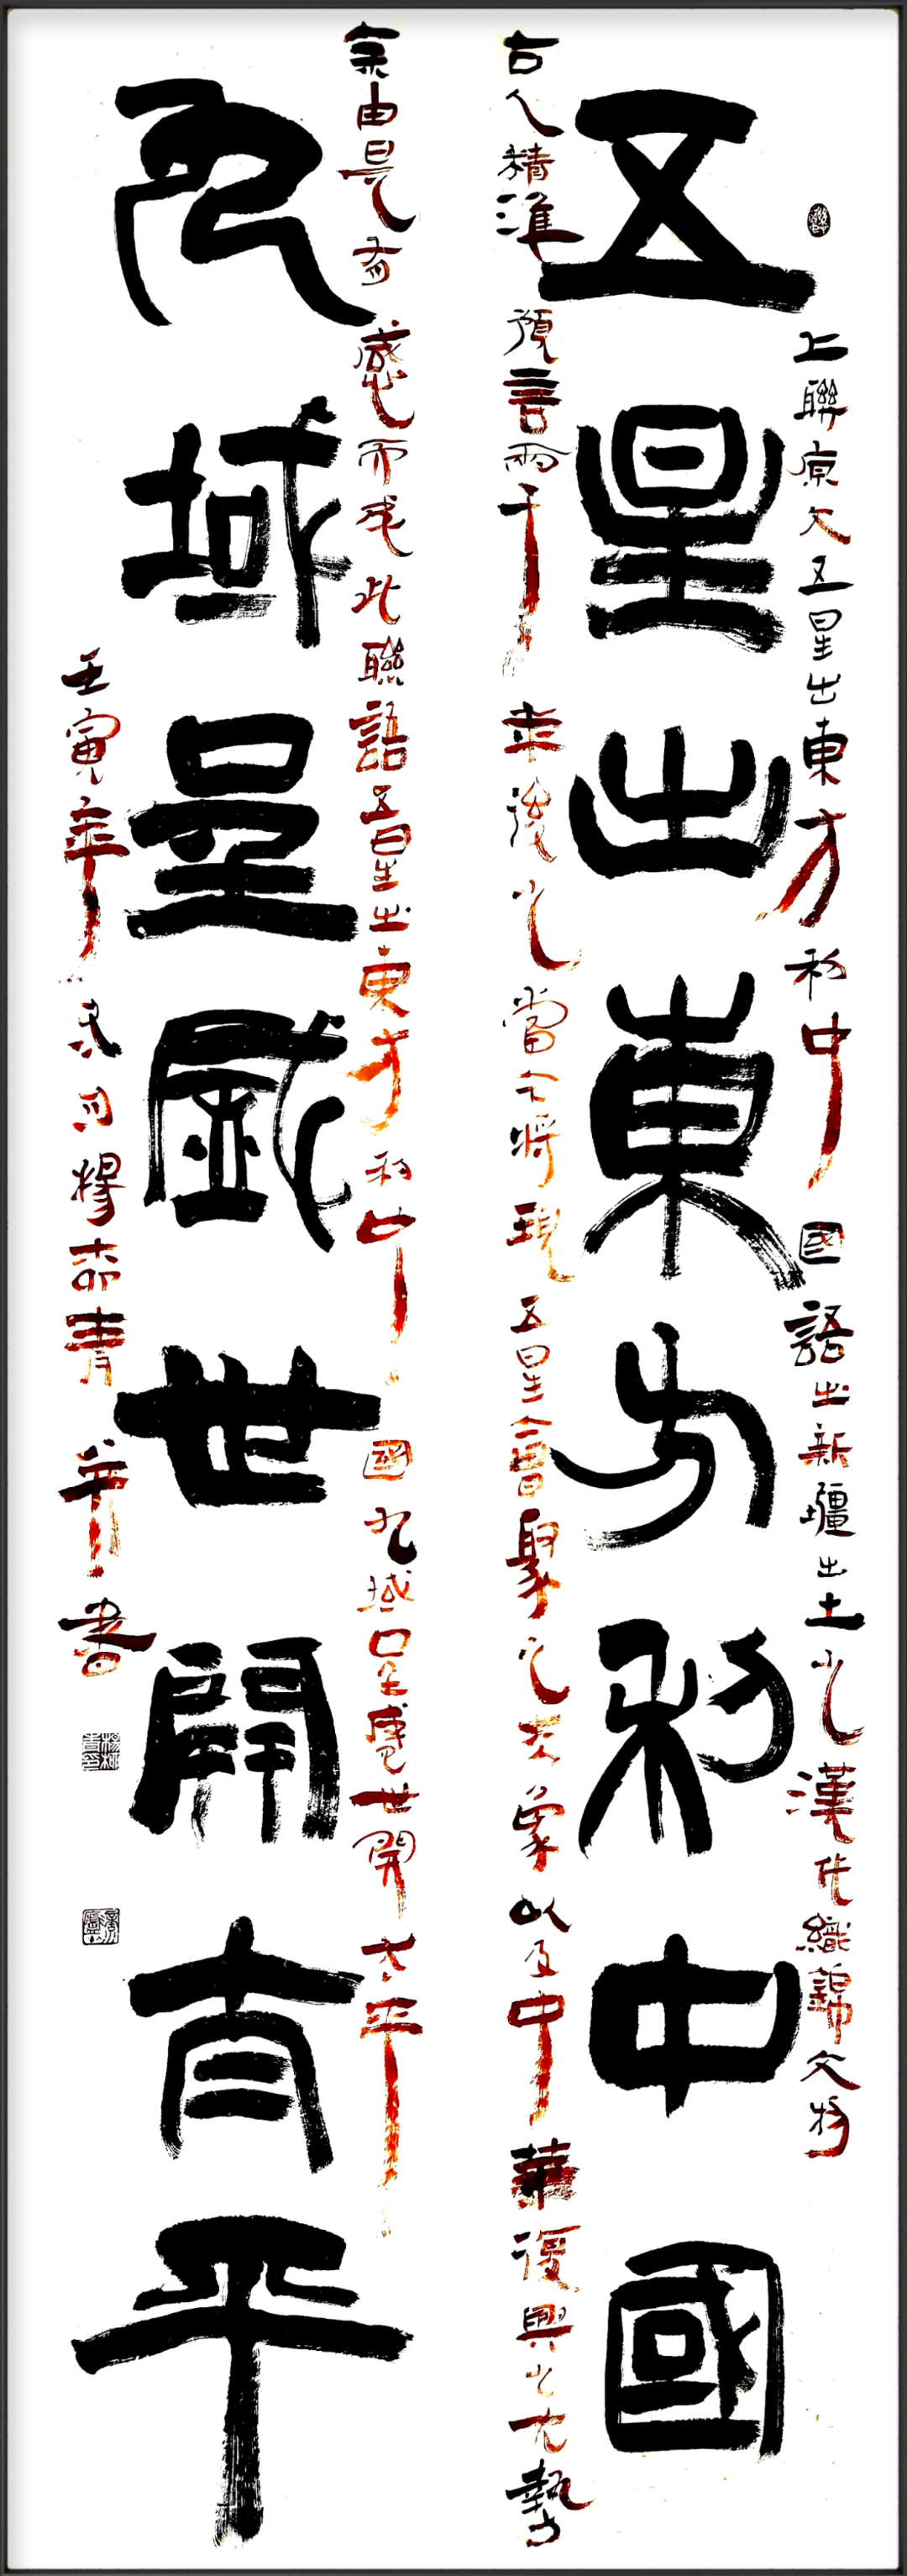 上聯原文五星出東方利中國語出新疆出土之漢代織錦文物
五星出東方利中國
古人精準預言兩千年後之當今將現五星會聚之天象以及中華復興之大勢
余由是有感而成此聯語五星出東方利中國九域呈盛世開太平
九域呈盛世開太平
壬寅年月楊柳青并書